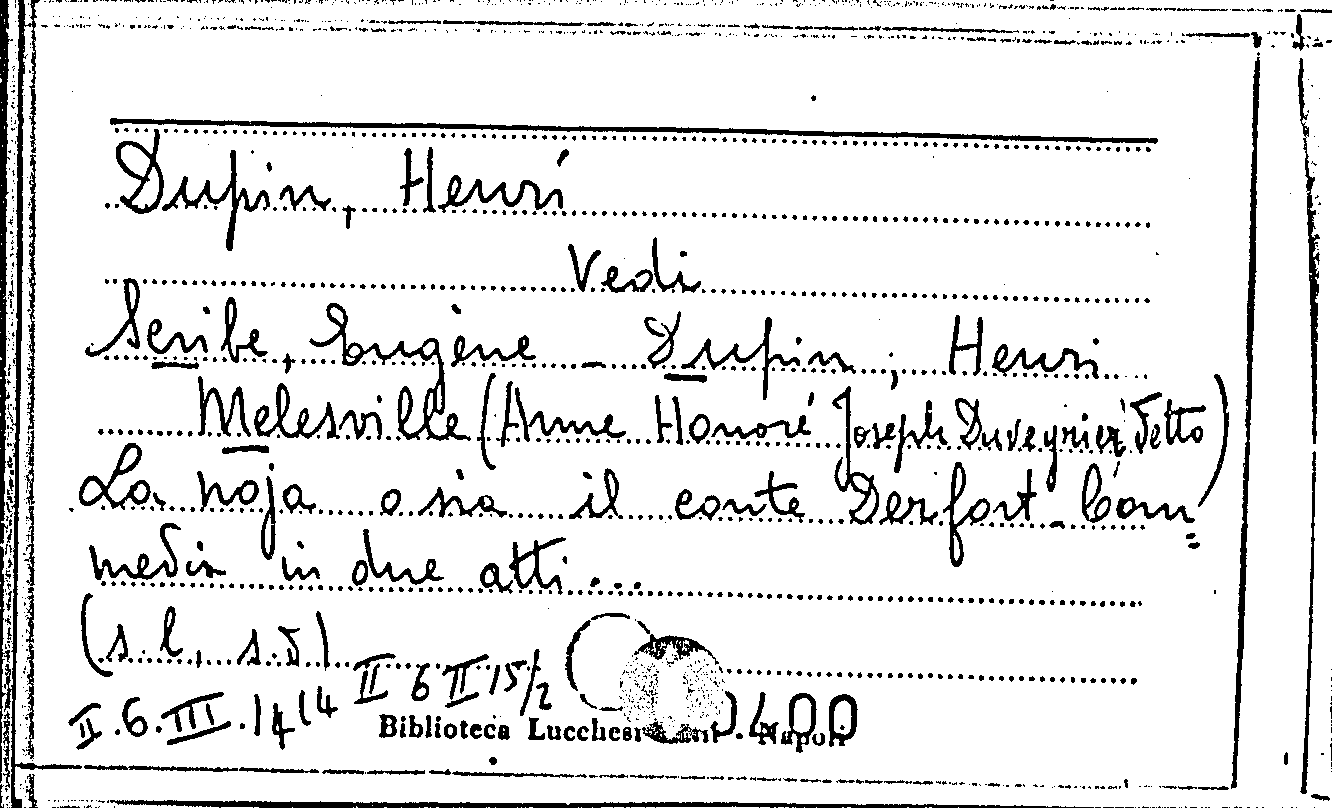 Dupin, Henri
Vedi
Scribe, Eugène - Dupin, Henri
Melesville (Anne Honoré Joseph Duveyrier detto)
La noja o sia il conte Derfort. Com=
media in due atti...
(s.l., s.d)
II 6 II 15/2
II.6.III.14 14
Biblioteca Napoli